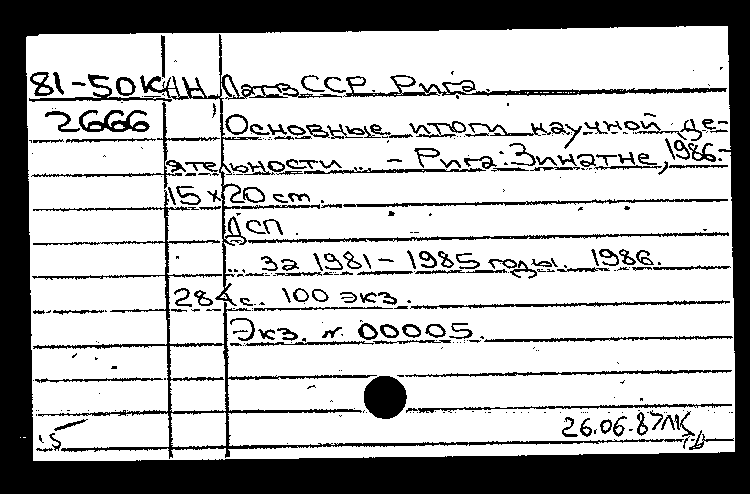 81-50К АН Латв ССР. Рига.
2666 Основные итоги научной де-
ятельности ... - Рига: Зинатне, 1986.-
15 x 20 cm.
ДСП.
... за 1981 - 1985 годы. 1986.
284 с. 100 экз.
Экз. № 00005.
26.06.87 ЛК
15